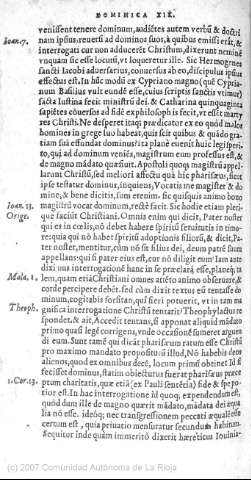 DOMINICA XIX.
venissent tenere dominum, audiētes autem verbū & doctri
nam ipsius: reuersi ad dominos suos, à quibus emissi erāt, &
Ioan.7.
interrogati cur non adducerēt Christum, dixerunt nemine
vnquam sic esse locutū, vt loqueretur ille. Sic Hermogenes
sancti Iacobi aduersarius, conuersus ab eo, discipulus ipsius
effectus est. In hūc modū ex Cypriano mago (quē Cypria
num Basilius vult eundē esse, cuius scriptis sanctis vtimur)
sacta Iustina fecit ministrū dei. & Catharina quinquaginta
sapiētes côuersos ad fidē exphilosophis fecit, vt essēt marty
res Christi. Ne desperet itaq; prædicator ex eo quòd malos
homines in grege suo habeat, quia scit quibus & quādo gra
tiam suā effundat dominus: ita planè euenit huic legisperi-
to, qui ad dominum veniēs, magistrum eum professus est, &
de magno mādato quæsiuit. Apostoli quoq; magistrū appel
larunt Christū, sed meliori affectu quā hic pharisæus, sicut
ipse testatur dominus, inquiens, Vocatis me magister & do
Ioan. 13.
mine, & bene dicitis, sum etenim: sic quisquis animo bono
magistrū vocat dominum, rectè facit. Sic hodie etiam pleri-
Orige.
que faciūt Christiani. Omnis enim qui dicit, Pater noster
qui es in cœlis, nō debet habere spiritū seruitutis in timo-
re: quia qui nō habet spiritū adoptionis filiorū, & dicit, Pa-
ter noster, mentitur, cùm nō sit filius dei, deum patrē suum
appellans: qui si pater eius est, cur nō diligit eum? Iam ante
dixi vos interrogationē hanc in se præclarā esse, planeq; ta
Mala. 1.
lem, quam etiā Christiani omnes attēto animo obseruare, &
corde percipere debēt. sed cùm dixit textus eū tentasse do
Theoph.
minum, cogitabis forsitan, quî fieri potuerit, vt in tam ma
gnifica interrogatione Christū tentarit? Theophylactus re
spondet, & ait, Accedit tentans, si apponat aliquid mādato
primo quasi legē corrigens, vnde occasionē sumeret accusā
di eum. Sunt tamē qui dicāt pharisæum ratum esse Christū
pro maximo mandato propositurū illud, Nō habebis deos
alienos, quod ex omnibus decē, locum primū obtinet Id si
fecisset dominus, statim obiecturus fuerat pharisæus præce
1.Cor.13.
ptum charitatis, quæ etiā (ex Pauli sententia) fide & spe po-
tior est. In hac interrogatione id quoq; expendendum est,
quòd dum ille de magno quærit mādato, mādata dei æqua
lia nō esse. ideoq; nec transgressionem peccati æqualē esse
certum est, quia priuatio mensuratur secundum habitum.
Sequitur inde quàm immeritò dixerit hæreticus Iouinia-
(c) 2007 Comunidad Autónoma de La Rioja